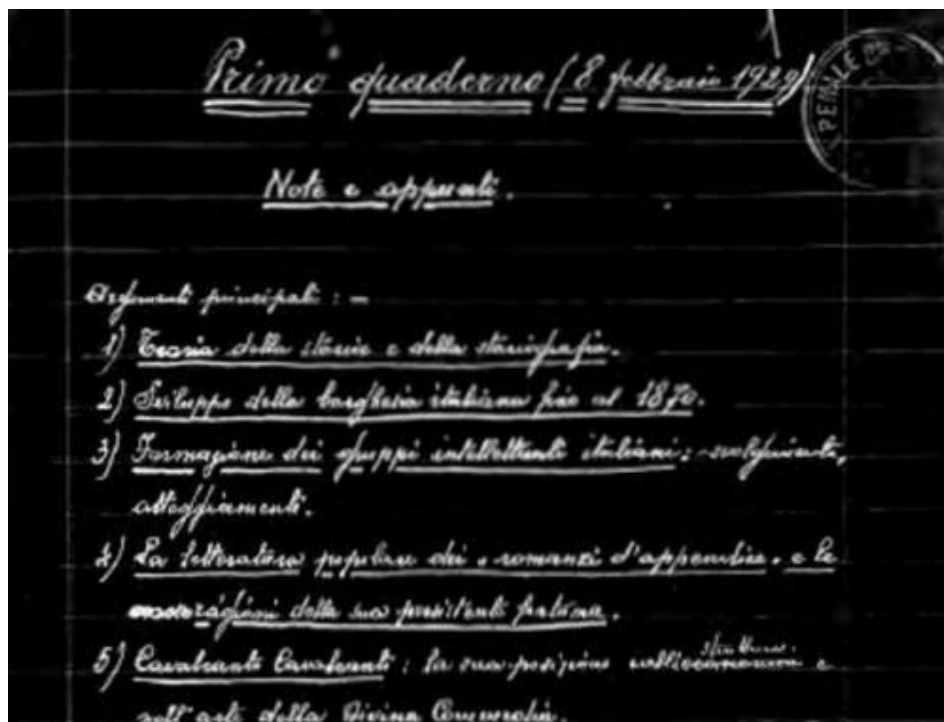 Primo quaderno (8 febbraio 1929)
PENALE
Note e appunti.
Argomenti principali : —
1) Teoria della storia e della storiografia.
2) Sviluppo della borghesia italiana fino al 1870.
3) Formazione dei gruppi intellettuali italiani: svolgimento,
atteggiamenti.
4) La letteratura popolare dei "romanzi d'appendice" e le
ragioni della sua persistente fortuna.
5) Cavalcante Cavalcanti: la sua posizione nella struttura e
nell'arte della Divina Commedia.